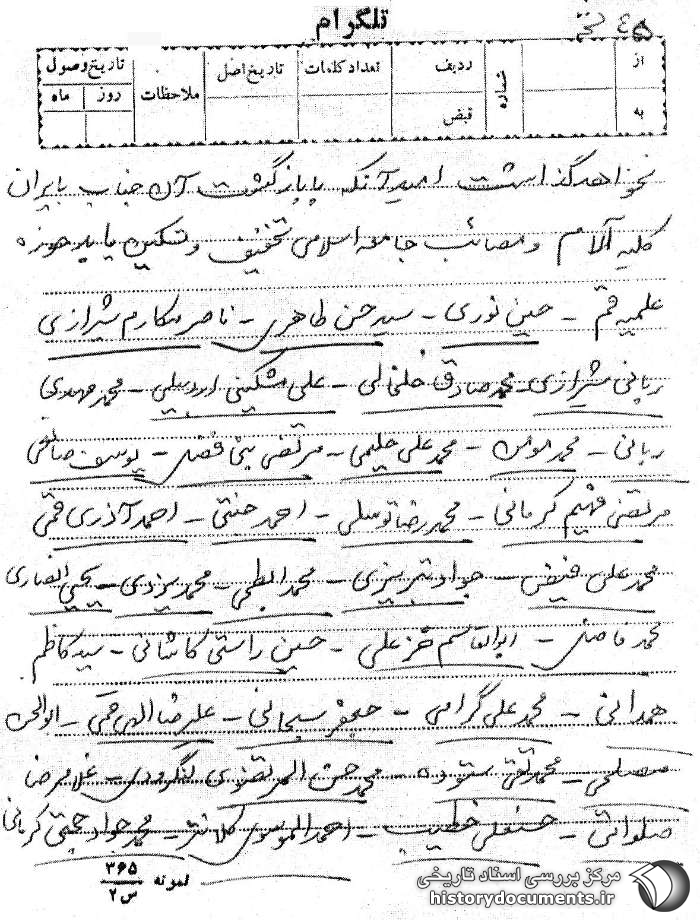 تلگرام
۴۵
از
به
شماره
ردیف
قبض
تعداد کلمات
تاریخ اصل
ملاحظات
تاریخ وصول
روز
ماه
نخواهد گذاشت امید آنکه با بازگشت آن جناب بایران
کلیه آلام و مصائب جامعه اسلامی تخفیف و تسکین یابد حوزه
علمیه قم - حسین نوری - سید حسن طاهری - ناصر مکارم شیرازی
ربانی شیرازی - محمد صادق خلخالی - علی مشکینی اردبیلی - محمد مهدی
ربانی - محمد مومن - محمد علی حلیمی - مرتضی بنی فضل - یوسف صانعی
مرتضی فهیم کرمانی - محمد رضا توسلی - احمد جنتی - احمد آذری قمی
محمد علی فیض - جواد تبریزی - محمد ابطحی - محمد یزدی - یحیی انصاری
محمد فاضل - ابوالقاسم خزعلی - حسین راستی کاشانی - سید کاظم
همدانی - محمد علی گرامی - جعفر سبحانی - علیرضا الهی قمی - ابوالحسن
مصلحی - محمد تقی ستوده - محمد حسن المرتضوی لنگرودی - غلامرضا
صلواتی - حسنعلی خطیب - احمد الموسوی کلانتر - محمد جواد حجتی کرمانی
نمونه ۳۶۵
س۲
مرکز بررسی اسناد تاریخی
historydocuments.ir